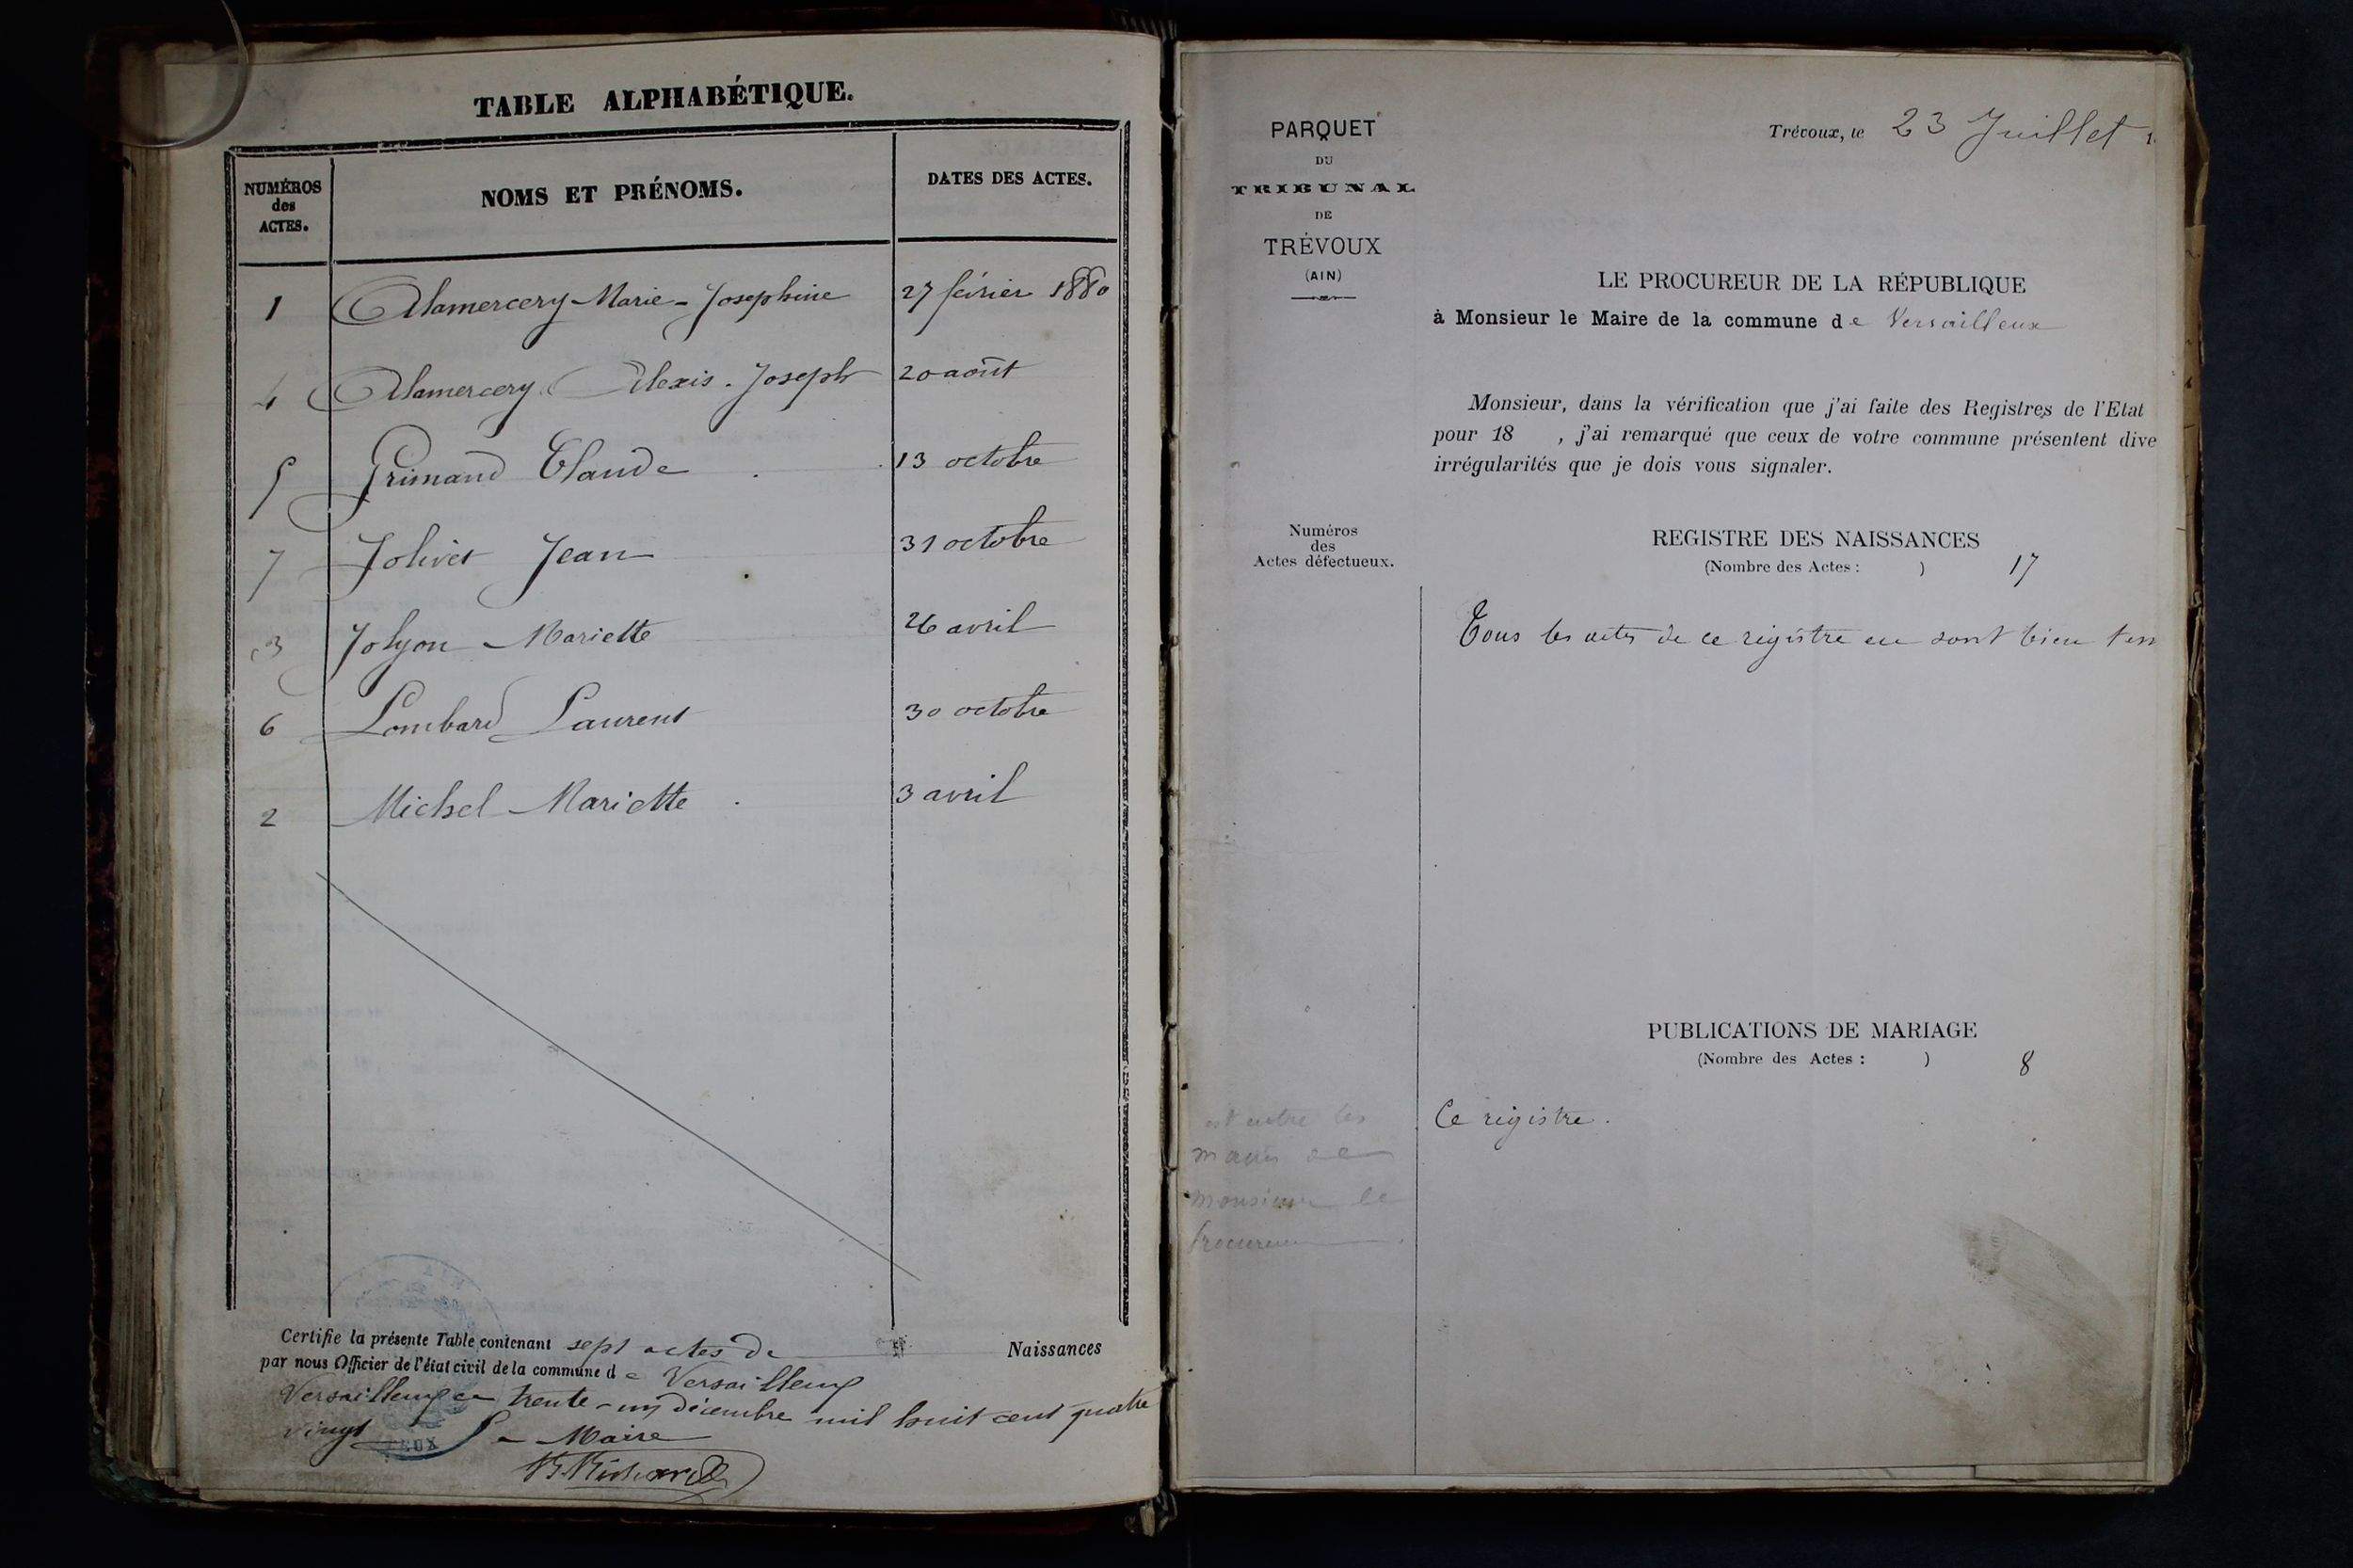 TABLE ALPHABÉTIQUE.
NUMÉROS
des
ACTES.
NOMS ET PRÉNOMS.
DATES DES ACTES.
1 Alamercery Marie-Josephine 27 février 1880
4 Alamercery Alexis. Joseph 20 août
5 Grimand Claude 13 octobre
7 Jolivet Jean 31 octobre
3 Jolyon Mariette 26 avril
6 Lombard Laurent 30 octobre
2 Michel Mariette 3 avril
Certifie la présente Table contenant sept actes de Naissances
par nous Officier de l'état civil de la commune de Versailleux
Versailleux ce trente-un décembre mil huit cent quatre
vingt Le Maire
PARQUET
DU
TRIBUNAL
DE
TRÉVOUX
(AIN)
Trévoux, le 23 Juillet 1
LE PROCUREUR DE LA RÉPUBLIQUE
à Monsieur le Maire de la commune de Versailleux
Monsieur, dans la vérification que j'ai faite des Registres de l'Etat
pour 18 , j'ai remarqué que ceux de votre commune présentent dive
irrégularités que je dois vous signaler.
Numéros
des
Actes défectueux.
REGISTRE DES NAISSANCES
(Nombre des Actes : ) 17
Tous les actes de ce registre en sont bien ten
PUBLICATIONS DE MARIAGE
(Nombre des Actes : ) 8
Ce registre.
est entre les
mains de
monsieur le
procureur